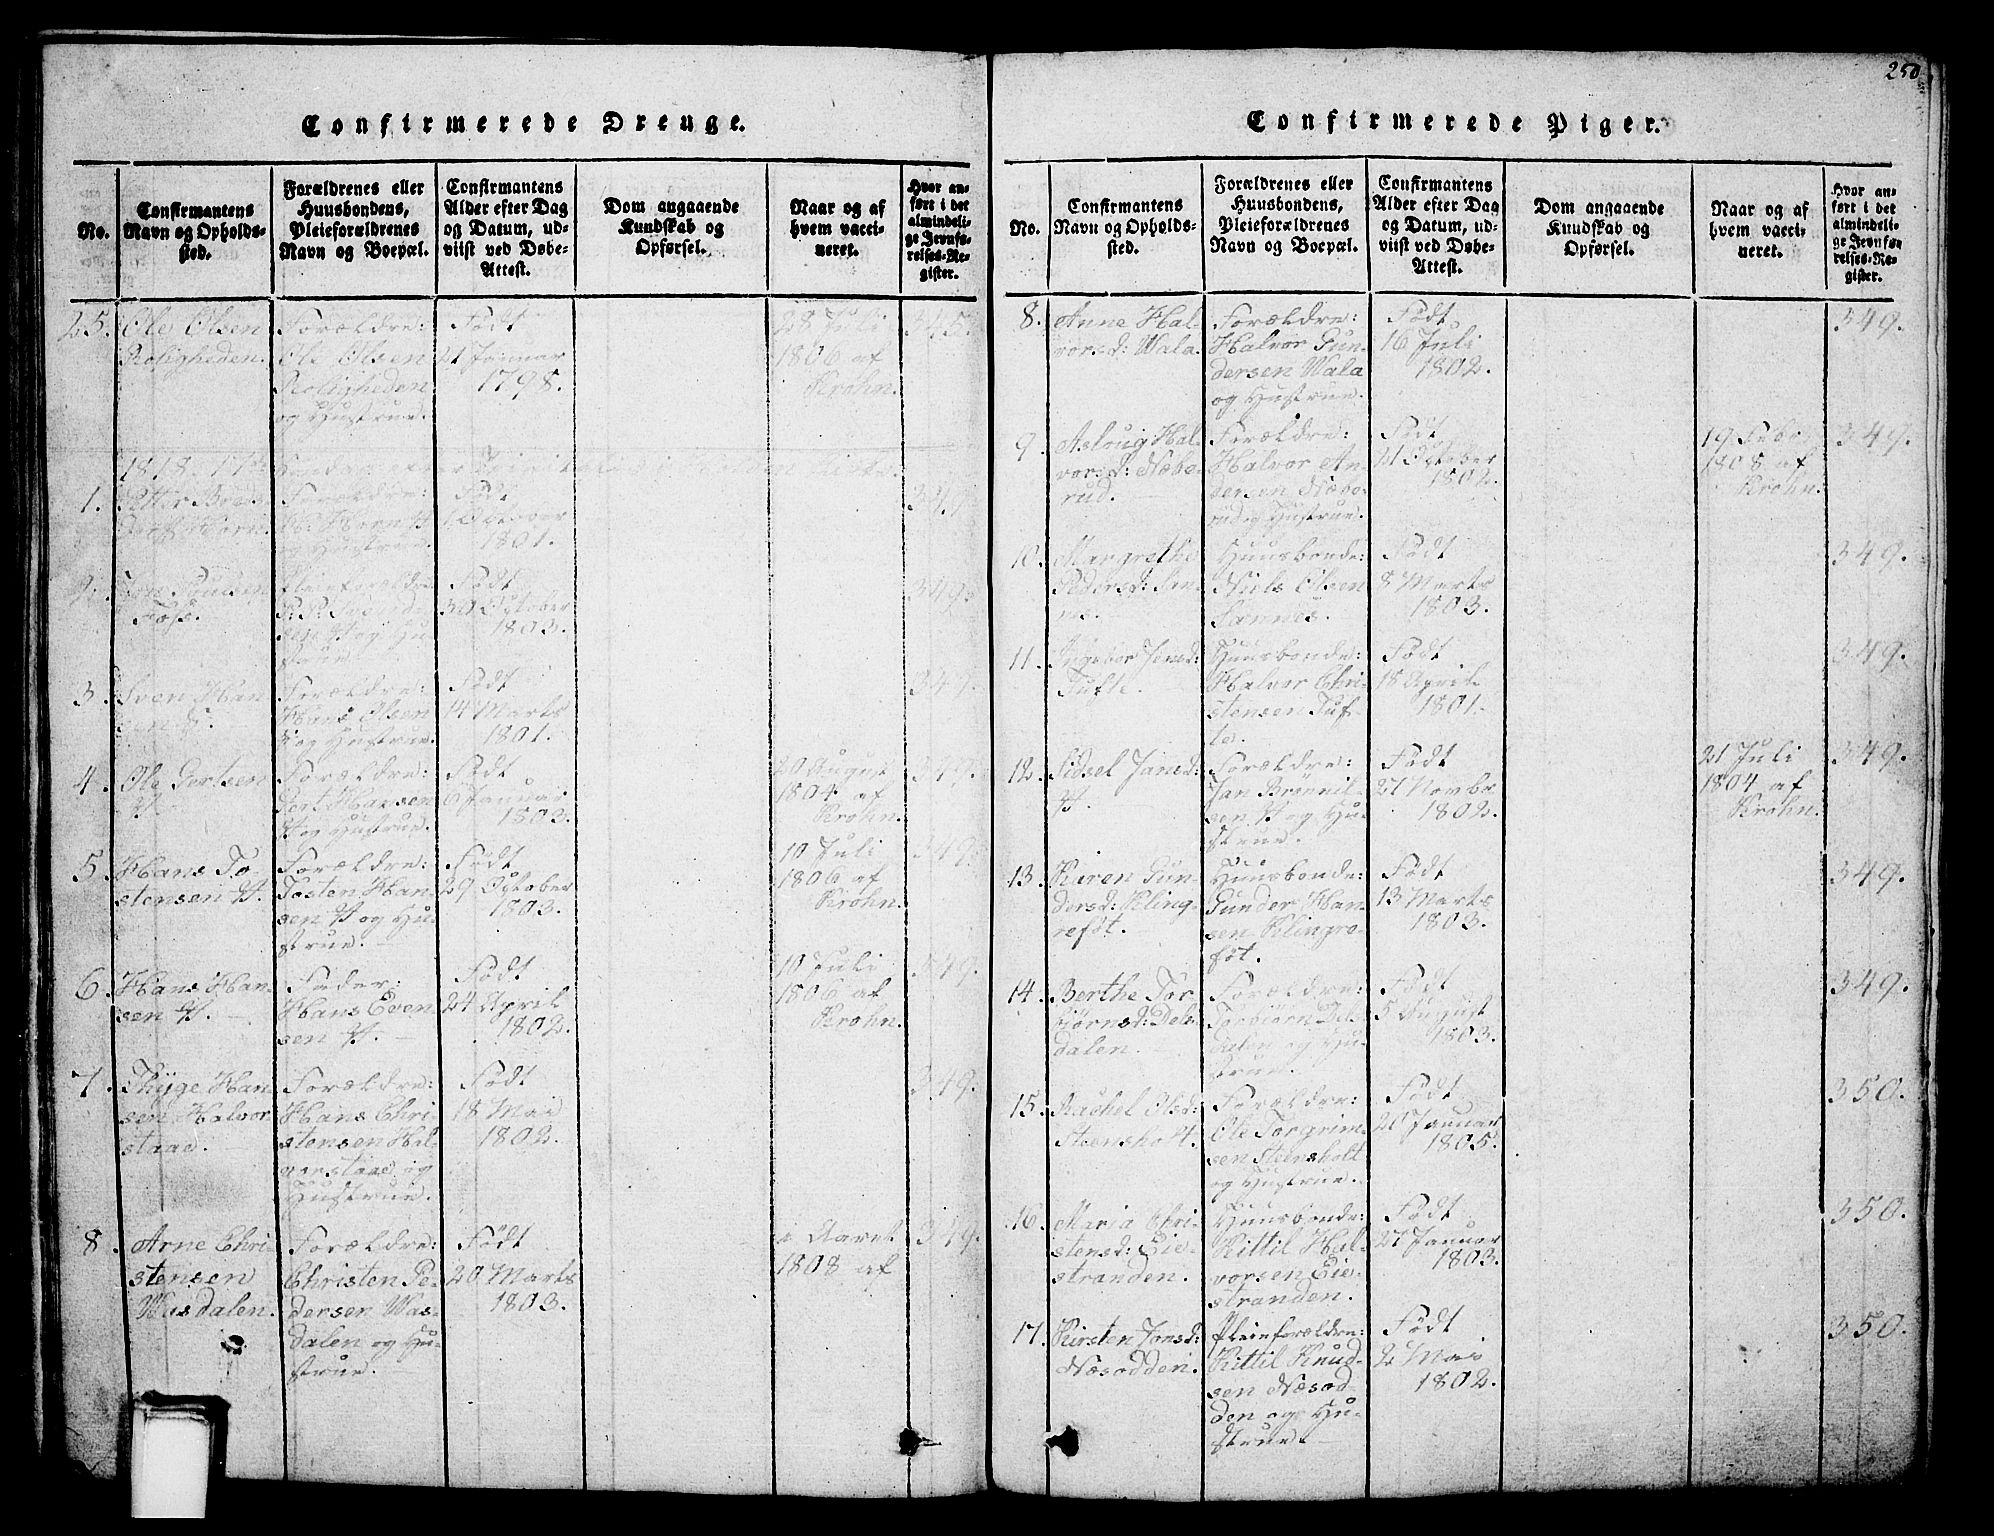 250
Confirmerede Drenge.
No.
Confirmantens
Navn og Opholds-
sted.
Forældrenes eller
Huusbondens,
Pleieforældrenes
Navn og Boepæl.
Confirmantens
Alder efter Dag
og Datum, ud-
viist ved Døbe-
Attest.
Dom angaaende
Kundskab og
Opførsel.
Naar og af
hvem vacci-
neret.
Hvor an-
ført i det
almindeli-
ge Jevnfø-
relses-Re-
gister.
25.
Ole Olsen
Roligheden.
Forældre:
Ole Olsen
Roligheden
og Hustrue.
Født
21 Januar
1798.
28 Juli
1806 af
Krohn.
345.
1818. 17de
1.
Forældre:
og Hustrue.
Født
1 October
1801.
349.
2.
Foss.
Pleieforældre
Hu-
strue
Født
30 October
1803.
349.
3.
Sven Han-
sen
Forældre:
Hans Olsen
og Hustrue.
Født
14 Marts
1801.
349.
4.
Ole Gertsen
Forældre:
Gert Hansen
og Hustrue.
Født
6 Januar
1803.
20 August
1804 af
Krohn.
349.
5.
Hans To-
stensen
Forældre:
Tosten Han-
sen og Hu-
strue.
Født
29 October
1803.
10 Juli
1806 af
Krohn.
349.
6.
Hans Han-
sen
Fader:
Hans Even-
sen
Født
24 April
1802.
10 Juli
1806 af
Krohn.
349.
7.
Thyge Han-
sen Halvor-
staae.
Forældre:
Hans Chri-
stensen Hal-
vorstaae og
Hustrue.
Født
18 Mai
1802.
349.
8.
Arne Chri-
stensen
Wasdalen.
Forældre:
Christen Pe-
dersen Was-
dalen og Hu-
strue.
Født
20 Marts
1803.
i Aaret
1808 af
349.
Confirmerede Piger.
No.
Confirmantens
Navn og Opholds-
sted.
Forældrenes eller
Huusbondens,
Pleieforældrenes
Navn og Boepæl.
Confirmantens
Alder efter Dag
og Datum, ud-
viist ved Døbe-
Attest.
Dom angaaende
Kundskab og
Opførsel.
Naar og af
hvem vacci-
neret.
Hvor an-
ført i det
almindeli-
ge Jevnfø-
relses-Re-
gister.
8.
Anne Hal-
vorsd: Wala.
Forældre:
Halvor Gun-
dersen Wala
og Hustrue.
Født
16 Juli
1802.
349.
9.
Aslaug Hal-
vorsd: Næbo-
rud.
Forældre:
Halvor An-
dersen Næbo-
rud og Hustrue.
Født
21 October
1802.
19 Febr
1808 af
Krohn.
349.
10.
Margrethe
Pedersd: San-
nes.
Huusbonde:
Niels Olsen
Sannes.
Født
8 Marts
1803.
349.
11.
Ingebor Jensd:
Tufte.
Huusbonde:
Halvor Chri-
stensen Tuf-
te.
Født
18 April
1801.
349.
12.
Sidsel Jansd:
Forældre:
Jan Brønnil-
sen og Hu-
strue.
Født
27 Novbr
1802.
21 Juli
1804 af
Krohn.
349.
13.
Karen Gun-
dersd: Kling-
refôt.
Huusbonde:
Gunder Han-
sen Klingre-
fôt.
Født
13 Marts
1803.
349.
14.
Berthe Tor-
biörnsd: Dels-
dalen.
Forældre:
Torbiörn Dels-
dalen og Hu-
strue.
Født
5 August
1803.
349.
15.
Rachel Olsd:
Steensholt.
Forældre:
Ole Torgrim-
sen Steensholt
og Hustrue.
Født
20 Januar
1805.
350.
16.
Maria Chri-
stensd: Eie-
stranden.
Huusbonde:
Kittil Hal-
vorsen Eie-
stranden.
Født
27 Januar
1803.
350.
17.
Kirsten Jonsd:
Næsodden.
Pleieforældre:
Kittil Knud-
sen Næsod-
den og Hu-
strue.
Født
2 Mai
1802.
350.